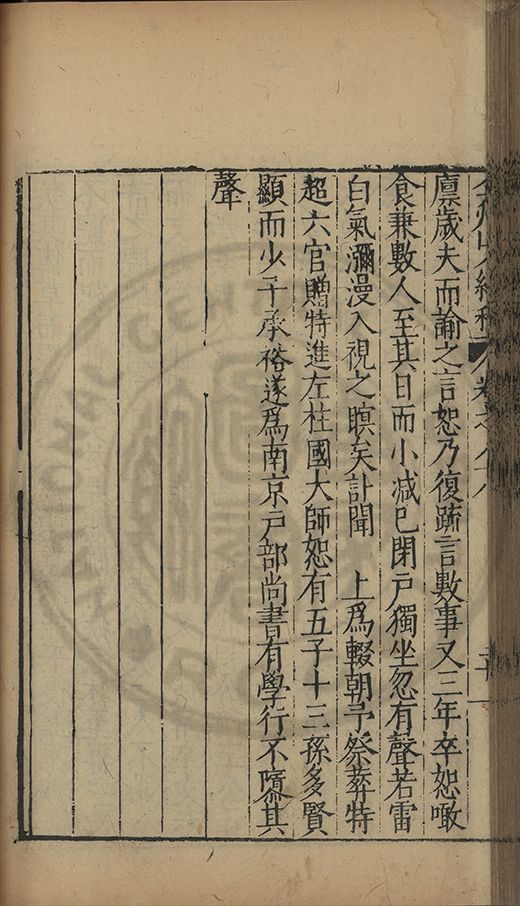 弇州山人續稿 卷之八十八
廪歲夫而諭之言恕乃復疏言數事又三年卒恕噉
食兼數人至其日而小減已閉戸獨坐忽有聲若雷
白氣瀰漫入視之瞑矣訃聞 上爲輟朝予祭葬特
超六官贈特進左柱國大師恕有五子十三孫多賢
顯而少子承裕遂爲南京戸部尚書有學行不隳其
聲